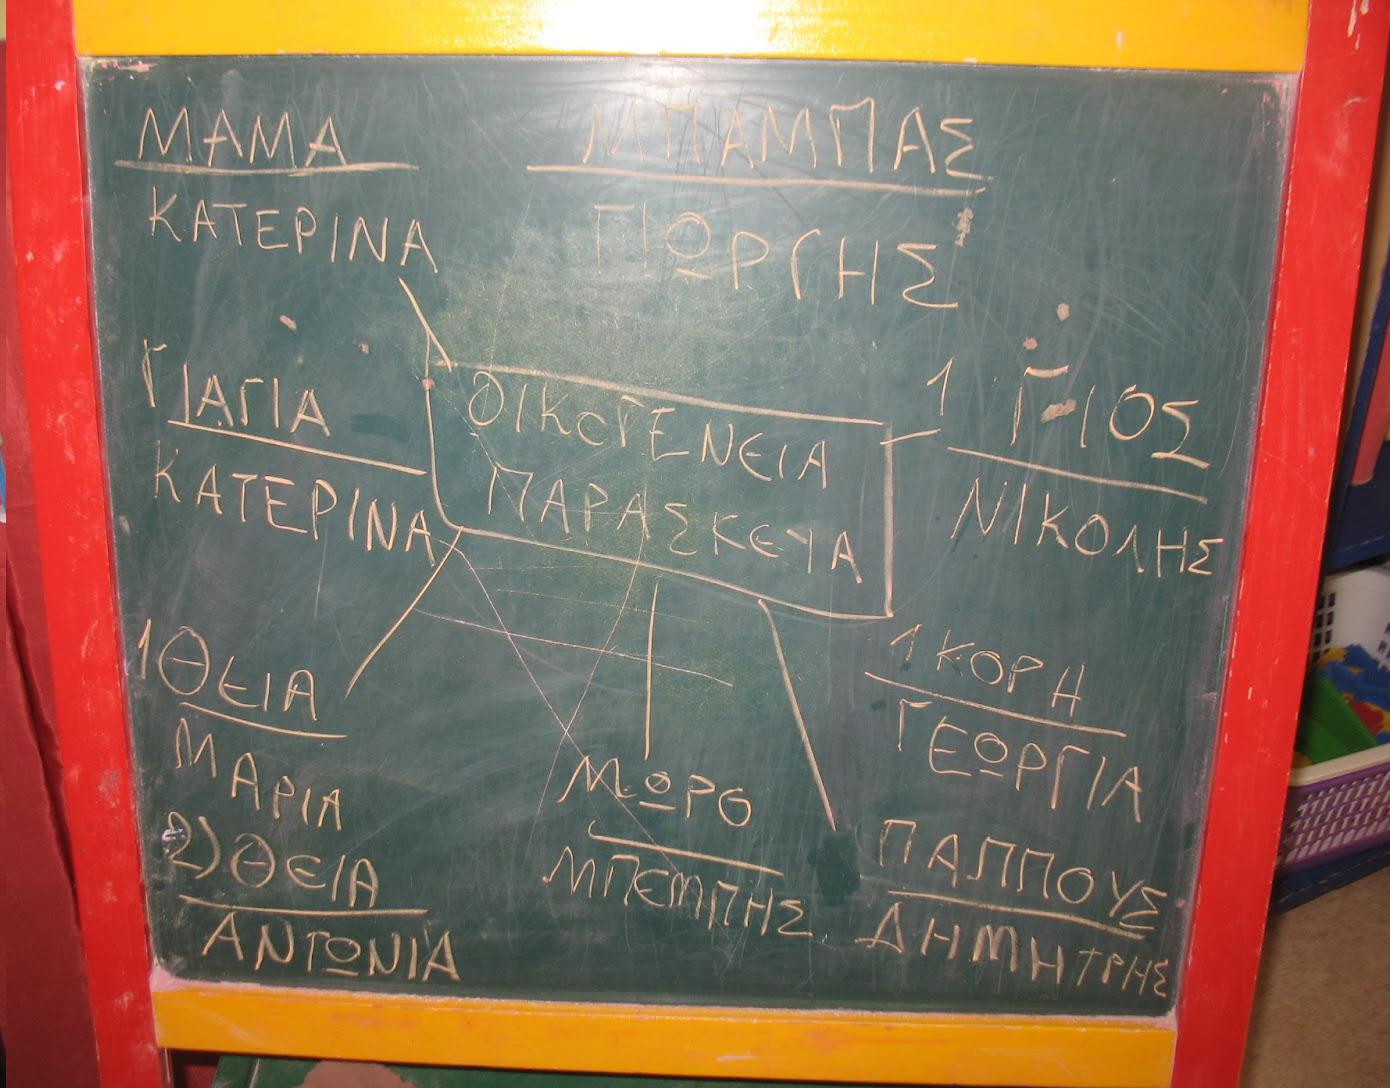 ΜΑΜΑ
ΚΑΤΕΡΙΝΑ
ΜΠΑΜΠΑΣ
ΓΙΩΡΓΗΣ
ΓΙΑΓΙΑ
ΚΑΤΕΡΙΝΑ
ΟΙΚΟΓΕΝΕΙΑ
ΠΑΡΑΣΚΕΥΑ
1 ΓΙΟΣ
ΝΙΚΟΛΗΣ
1 ΘΕΙΑ
ΜΑΡΙΑ
2) ΘΕΙΑ
ΑΝΤΩΝΙΑ
ΜΩΡΟ
ΜΠΕΜΠΗΣ
1 ΚΟΡΗ
ΓΕΩΡΓΙΑ
ΠΑΠΠΟΥΣ
ΔΗΜΗΤΡΗΣ